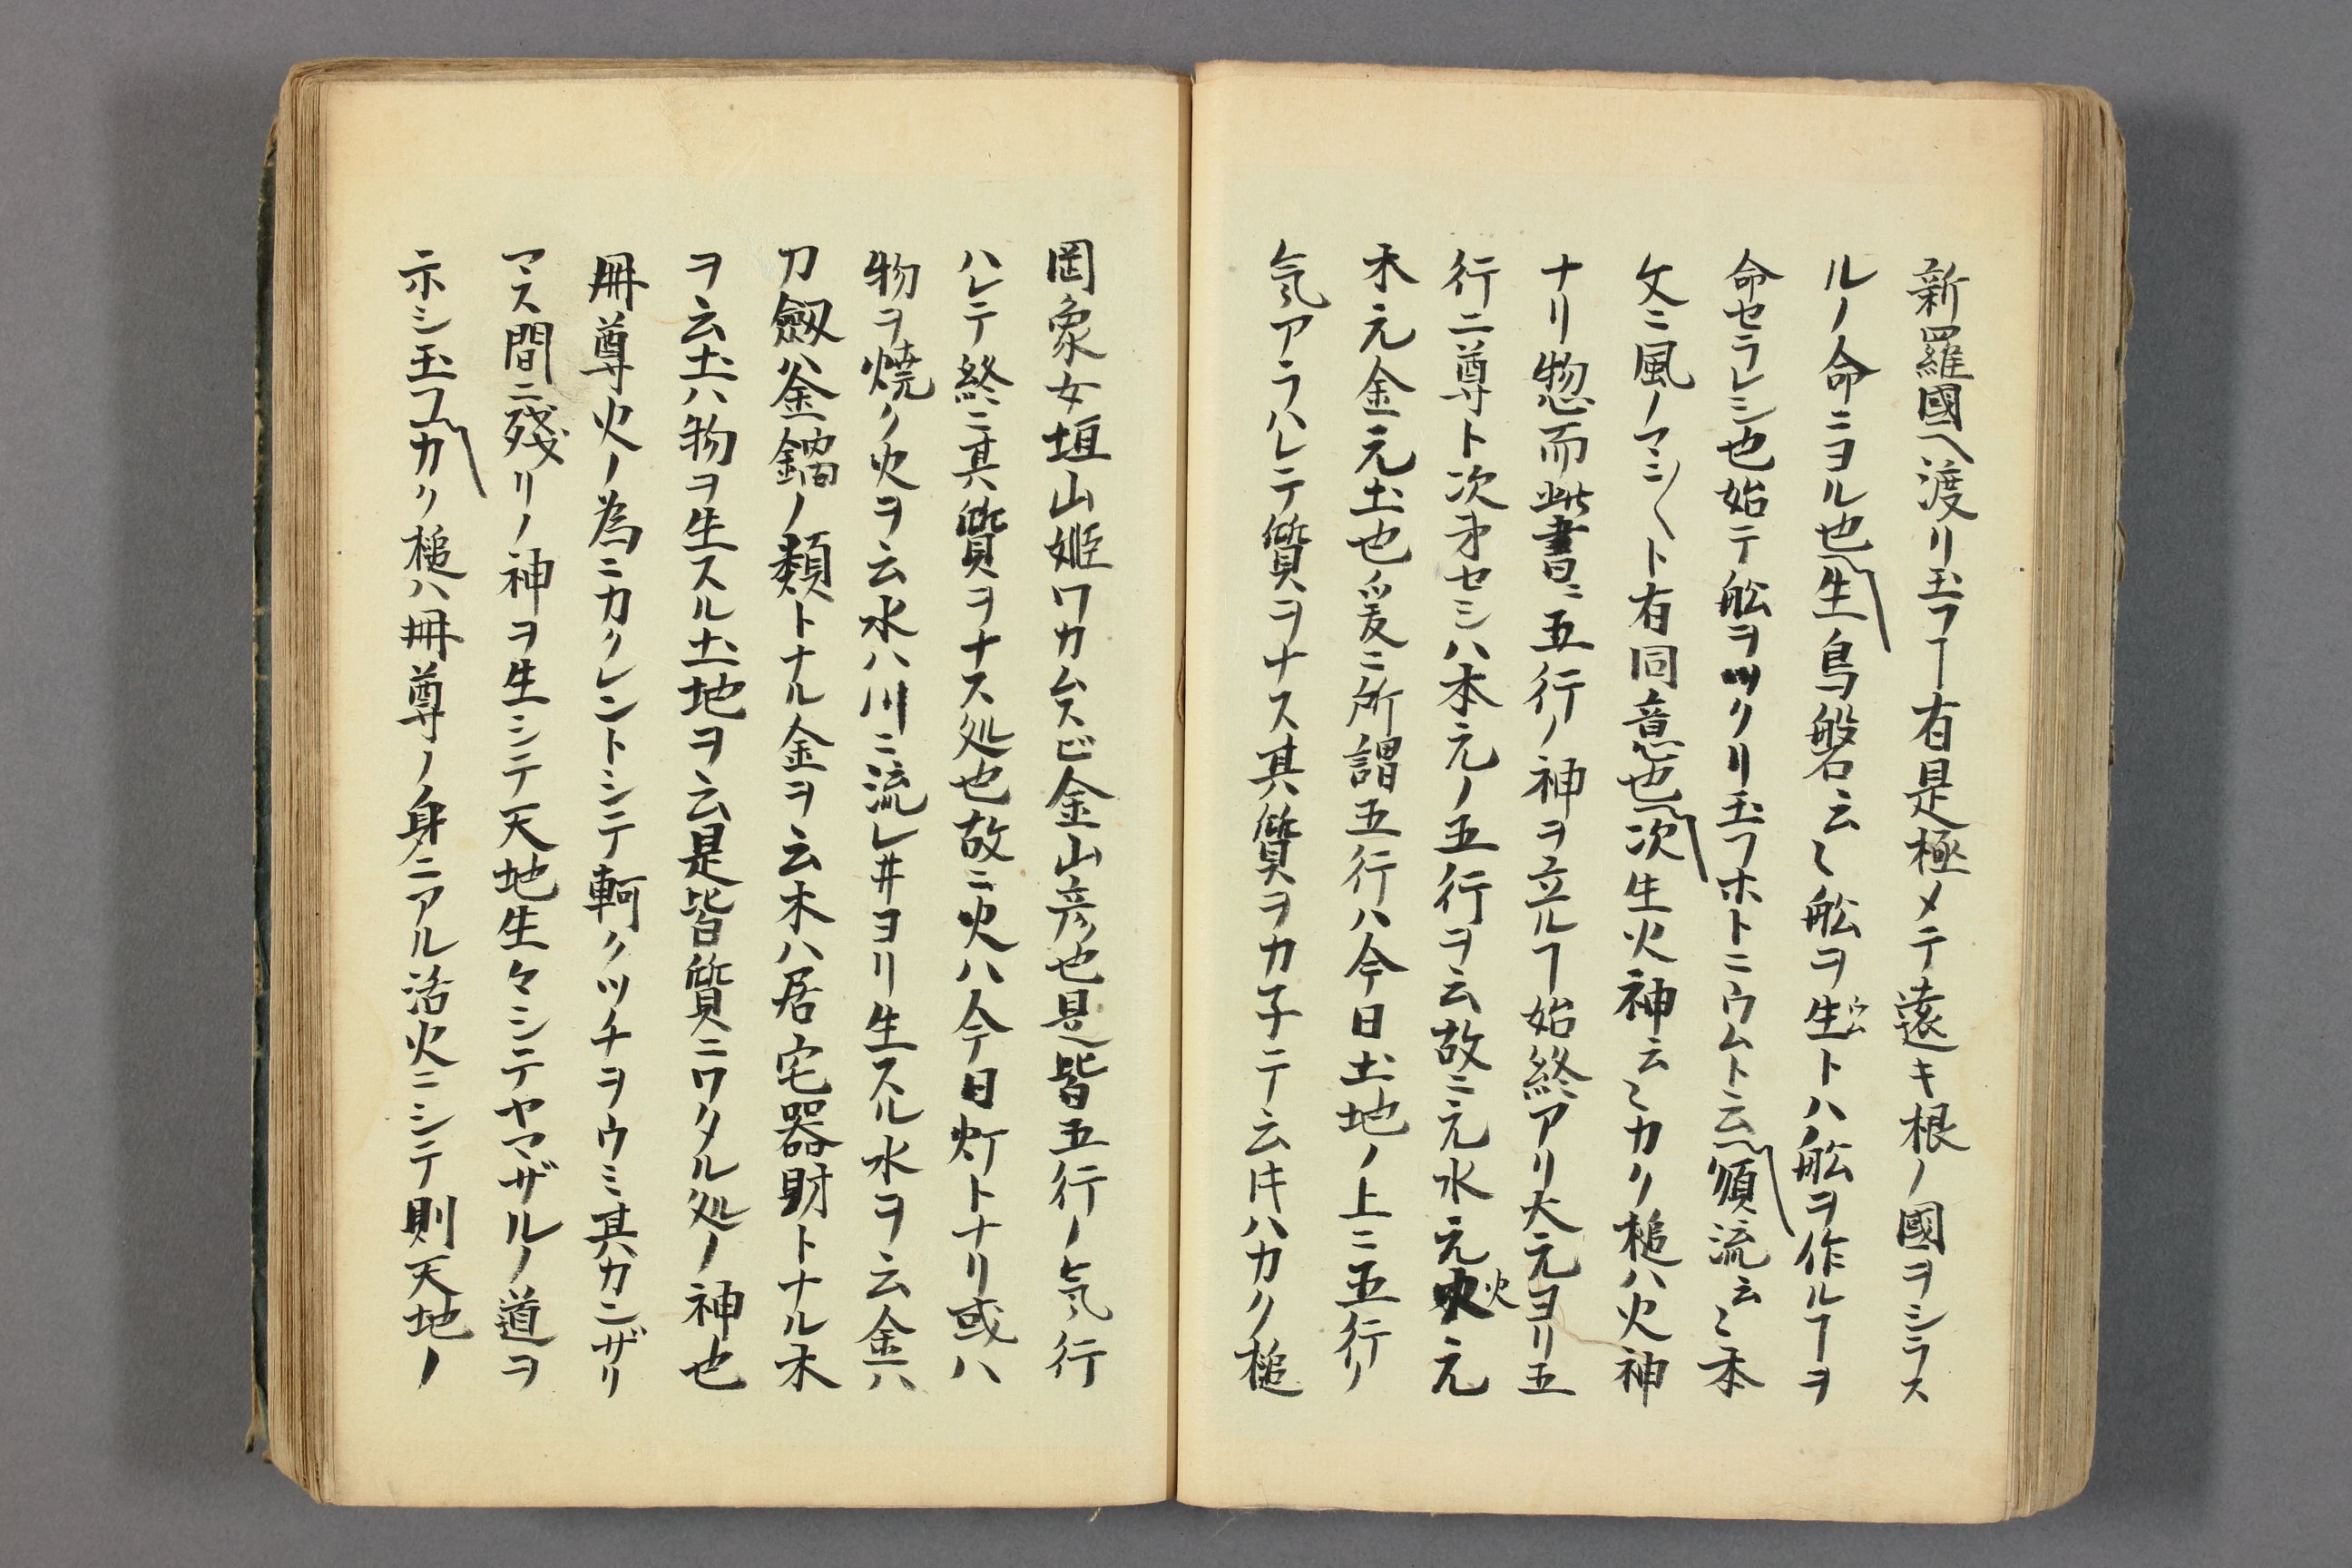 新羅國ヘ渡リ玉フヿ有是極メテ遠キ根ノ國ヲシラス
ルノ命ニヨル也生鳥磐云〻舩ヲ生ウムトハ舩ヲ作ルヿヲ
命セラレシ也始テ舩ヲツクリ玉フホトニウムト云順流云〻本
文ニ風ノマシ〱ト有同意也次生火神云〻カク槌ハ火神
ナリ惣而此書ニ五行ノ神ヲ立ルヿ始終アリ大元ヨリ五
行二尊ト次才セシハ本元ノ五行ヲ云故ニ元水元火元
木元金元土也爰ニ所謂五行ハ今日土地ノ上ニ五行ノ
気アラハレテ質ヲナス其質ヲカ子テ云𪜈ハカク槌
罔象女垣山姫ワカムスビ金山彦也是皆五行ノ気行
ハレテ終ニ其質ヲナス処也故ニ火ハ今日灯トナリ或ハ
物ヲ焼ク火ヲ云水ハ川ニ流レ井ヨリ生スル水ヲ云金ハ
刀劔釜鐺ノ類トナル金ヲ云木ハ居宅器財トナル木
ヲ云土ハ物ヲ生スル土地ヲ云是皆質ニワタル処ノ神也
冊尊火ノ為ニカクレントシテ軻クツチヲウミ其カニザリ
マス間ニ残リノ神ヲ生シテ天地生々シテヤマザルノ道ヲ
示シ玉フカク槌ハ冊尊ノ身ニアル活火ニシテ則天地ノ